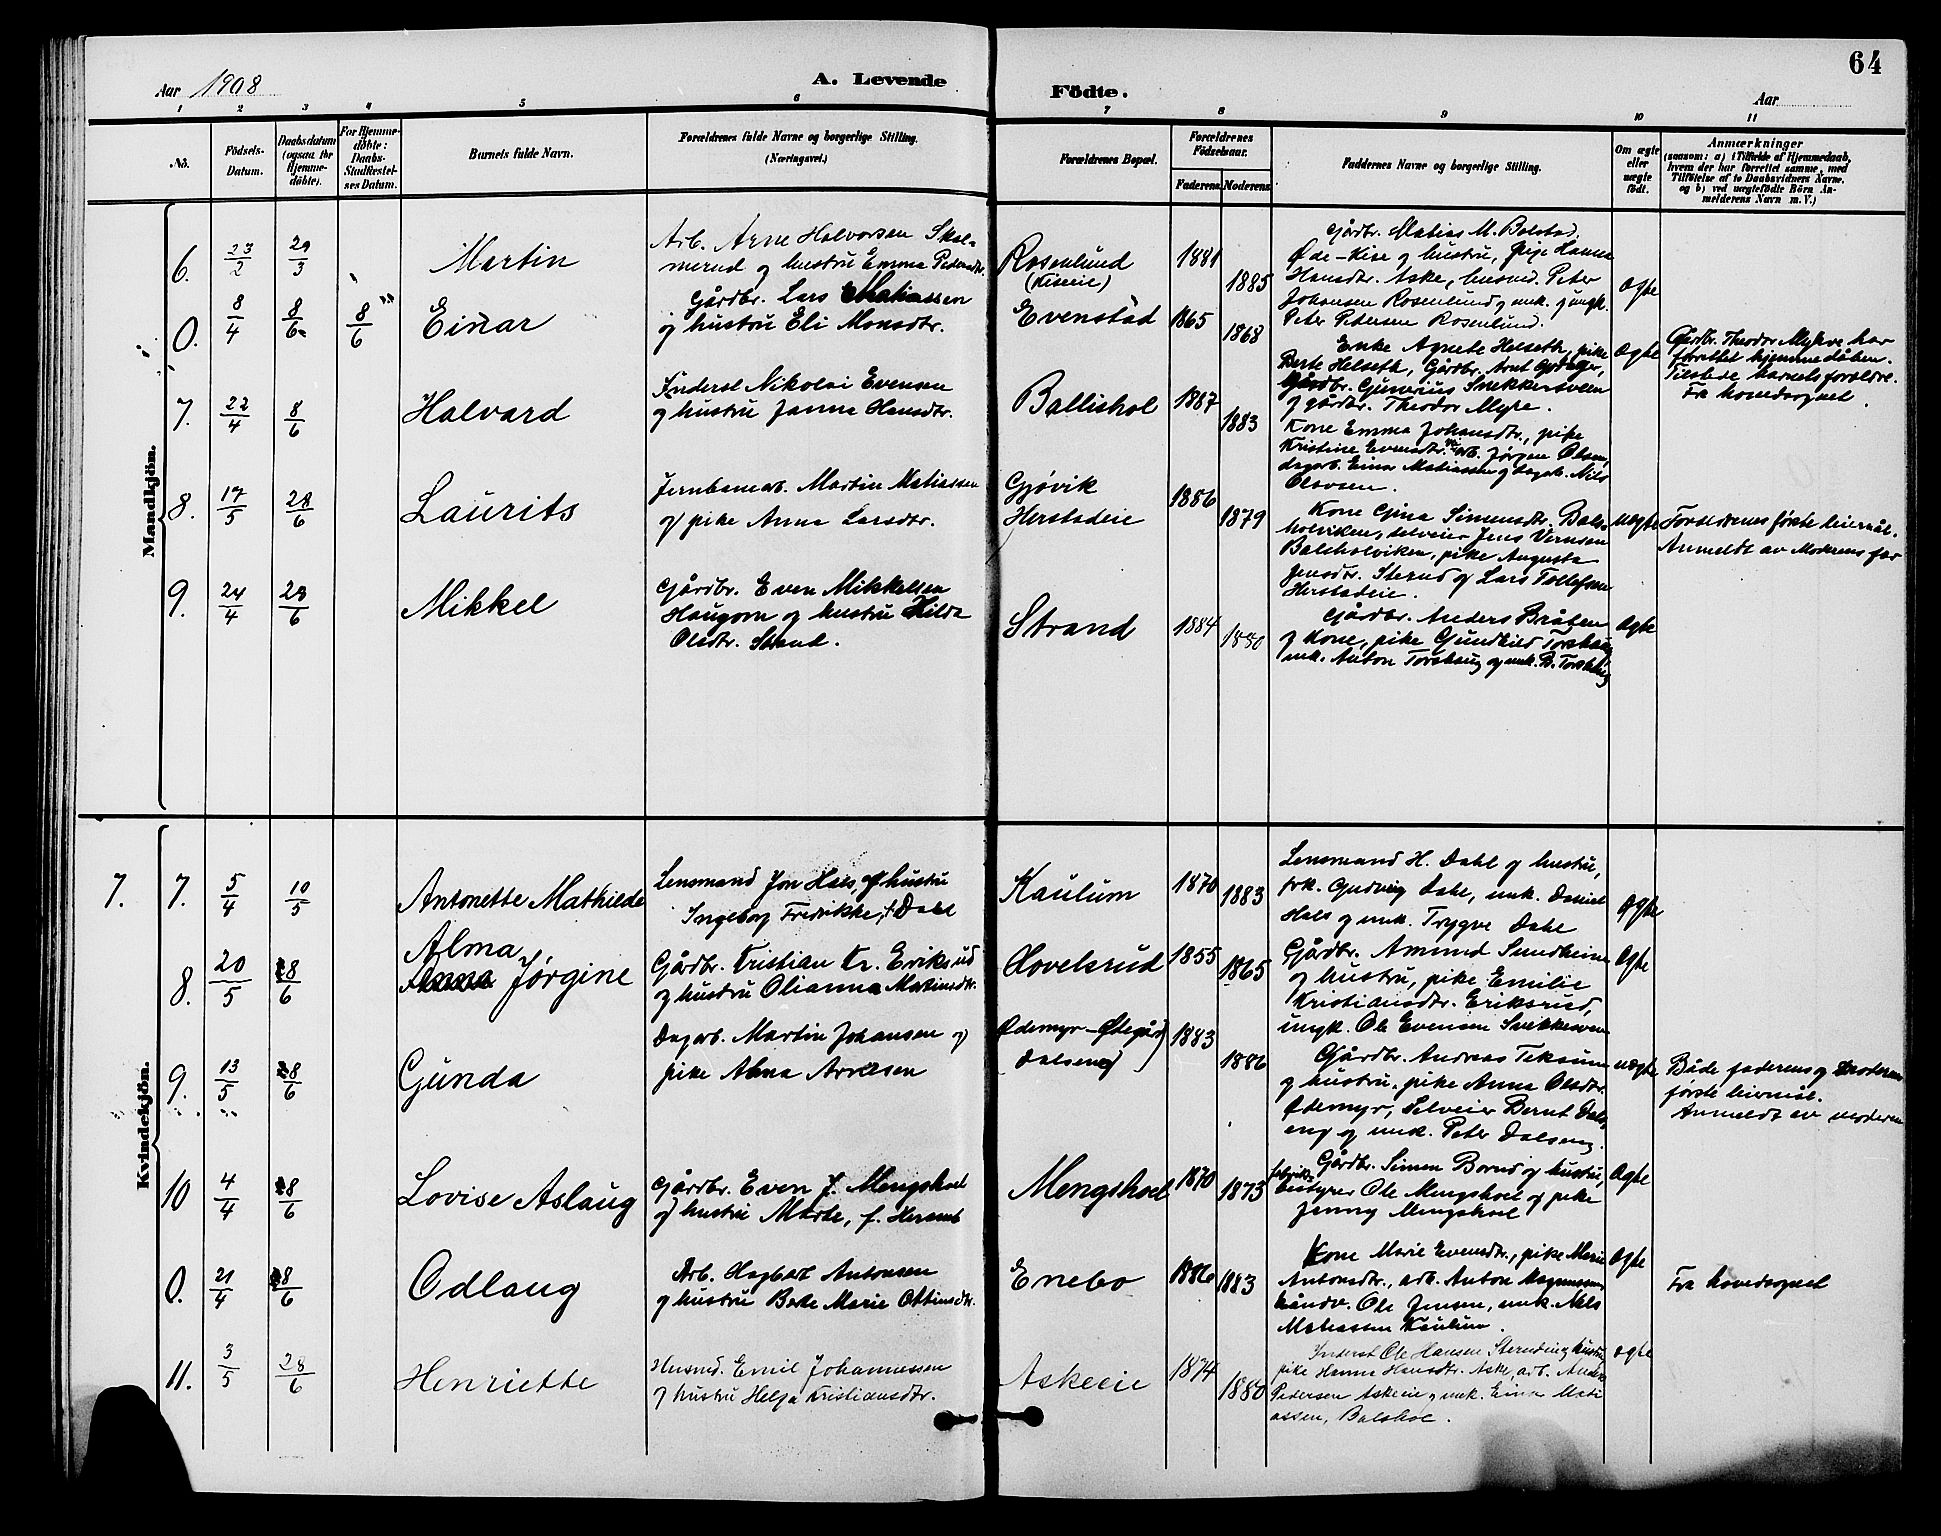 64
Aar 1908
A. Levende Födte.
Aar
1 2 3 4 5 6 7 8 9 10 11
No.
Födsels-Datum.
Daabsdatum (ogsaa for Hjemme-döbte).
For Hjemme-döbte: Daabs-Stadfæstel-ses Datum.
Barnets fulde Navn.
Forældrenes fulde Navne og borgerlige Stilling. (Næringsvei.)
Forældrenes Bopæl.
Forældrenes Födselsaar.
Faderens. Moderens.
Faddernes Navne og borgerlige Stilling.
Om ægte eller uægte födt.
Anmærkninger
(saasom: a) i Tilfælde af Hjemmedaab,
hvem der har forrettet samme, med
Tilföielse af to Daabsvidners Navne,
og b) ved uægtefödte Börn An-
melderens Navn m. V.)
Mandkjön.
6. 23/2 29/3 Martin
Arb. Arne Halvorsen Skal-
merud og hustru Emma Pedersdtr.
Rosenlund
(Kiseie)
1881 1885
Gårdbr. Matias M. Balstad,
Øde-Kise og hustru, pige Hanna
Hansdtr. Aske, husmd. Peter
Johansen Rosenlund og umk. og ungk.
Peter Petersen Rosenlund.
Ægte
0. 8/4 8/6 8/6 Einar
Gårdbr. Lars Matiassen
og hustru Eli Monsdtr.
Evenstad 1865 1868
Enke Agnete Helseth, pike
Berte Helseth, Gårdbr. Arnt
Gårdbr. Gunerius Snekkersveen
og gårdbr. Theodor Myhre.
Ægte
Gårdbr. Theodor Myhre har
forrettet hjemmedåben.
Tilstede barnets forældre.
Fra hovedsognet.
7. 22/4 8/6 Halvard
Inderst Nikolai Evensen
og hustru Janna Hansdtr.
Ballishol 1887 1883
Kone Emma Johansdtr., pike
Kristine Evensdtr., arb. Jørgen Olsen,
dagarb. Einar Matiassen og dagarb. Nils
Olavsen.
8. 17/5 28/6 Laurits
Jernbanearb. Martin Matiassen
og pike Anna Larsdtr.
Gjøvik
Herstadeie
1886 1879
Kone Gina Simensdtr. Bals-
holviken, selveier Jens Vernsen
Balsholviken, pike Augusta
Jensdtr. Sterud og Lars Tollefsen
Herstadeie.
uægte
Forældrenes første leiermål.
Anmeldt av Moderens far
9. 24/4 28/6 Mikkel
Gårdbr. Even Mikkelsen
Haugom og hustru Hilda
Olsdtr. Strand.
Strand 1884 1880
Gårdbr. Anders Bråten
og Kone, pike Gundhild Torshaug,
umk. Anton Torshaug og umk. B. Torshaug
Ægte
Kvindekjön.
7. 7. 5/4 10/5 Antonette Mathilde
Lensmand Jon Hals, og hustru
Ingeborg Fredrikke, f. Dahl
Kaulum 1870 1883
Lensmand H. Dahl og hustru,
frk. Gudveig Dahl, umk. Daniel
Hals og umk. Trygve Dahl
Ægte
8. 20/5 8/6 Alma
Anna Jørgine
Gårdbr. Kristian Kr. Eriksrud
og hustru Olianna Martinsdtr.
Hovelsrud 1855 1865
Gårdbr. Amund Sundheim
og hustru, pike Emilie
Kristiansdtr. Eriksrud,
ungk. Ole Evensen Snikkesveen
Ægte
9. 13/5 8/6 Gunda
Dagarb. Martin Johansen og
pike Alma Arnesen
Ødemyr-Ødegård
Dalseng
1883 1886
Gårdbr. Andreas Teksum
og hustru, pike Anna Olsdtr.
Ødemyr, Selveier Bernt Dals-
eng og umk. Peter Dalseng.
uægte
Både faderens og moderens
første leiermål.
Anmeldt av moderen
10 4/4 8/6 Lovise Aslaug
Gårdbr. Even J. Mengshoel
og hustru Marte, f. Hersoug
Mengshoel 1870 1873
Gårdbr. Simen Borud og hustru,
fabrik-
bestyrer Ole Mengshoel og pike
Jenny Mengshoel
Ægte
0. 21/4 8/6 Odlaug
Arb. Hagbart Antonsen
og hustru Berte Marie Ottinsdtr.
Enebo 1886 1883
Kone Marie Evensdtr., pike Marie
Antonsdtr., arb. Anton Magnussen,
håndv. Ole Jensen, umk. Nils
Matiassen Kaulum.
Ægte
Fra hovedsognet
11. 3/5 28/6 Henriette
Husmd. Emil Johannessen
og hustru Helga Kristiansdtr.
Askeeie 1874 1880
Inderst Ole Hansen Sterudeng, hustru
pike Hanna Hansdtr. Aske, arb. Anders
Pedersen Askeeie og umk. Einar Mati-
assen, Balshoel.
Ægte